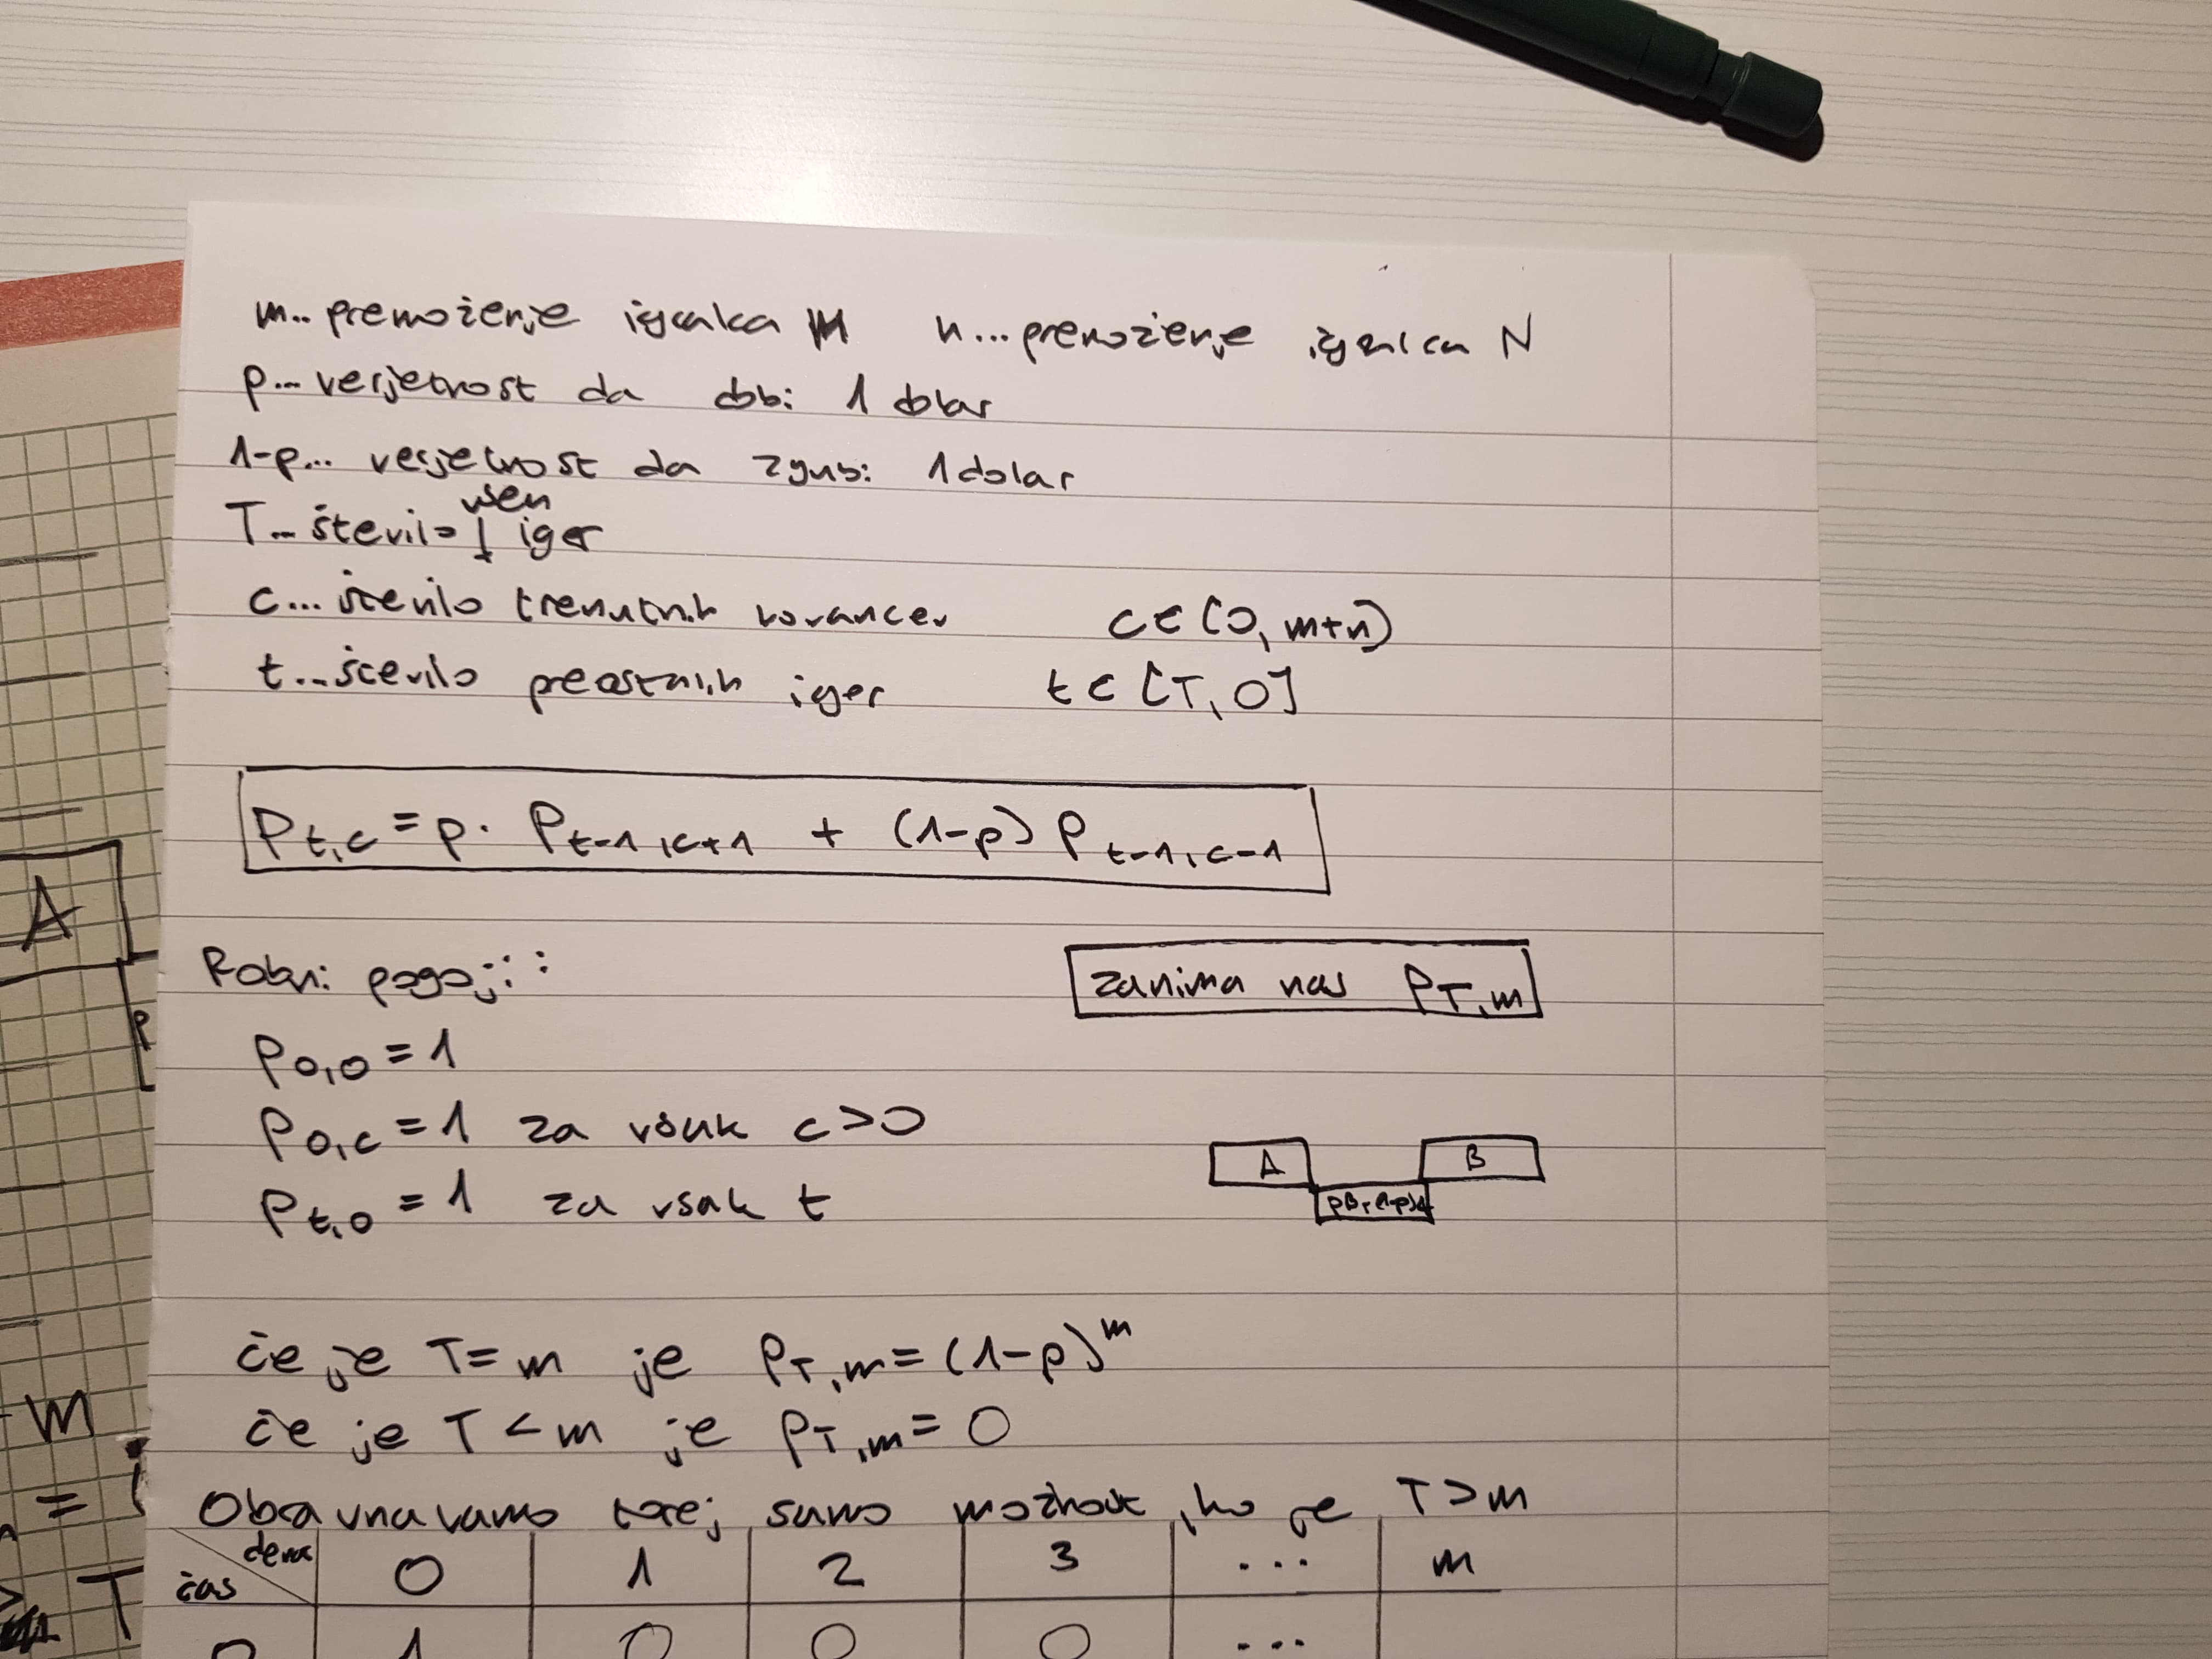 m.. premoženje igralca M n... premoženje igralca N
p... verjetnost da dobi 1 dolar
1-p... verjetnost da zgubi 1 dolar
T... število vseh iger
c... število trenutnih kovancev c ∈ [0, m+n]
t... število preostalih iger t ∈ [T, 0]
P_{t,c} = p · P_{t-1,c+1} + (1-p) P_{t-1,c-1}
Robni pogoji:
zanima nas P_{T,m}
P_{0,0} = 1
P_{0,c} = 1 za vsak c > 0
P_{t,0} = 1 za vsak t
A B
če je T = m je P_{T,m} = (1-p)^m
če je T < m je P_{T,m} = 0
Obravnavamo torej samo možnost, ko je T > m
denar
čas 0 1 2 3 ... m
0 1 0 0 0 ...
A
P
m
=
T